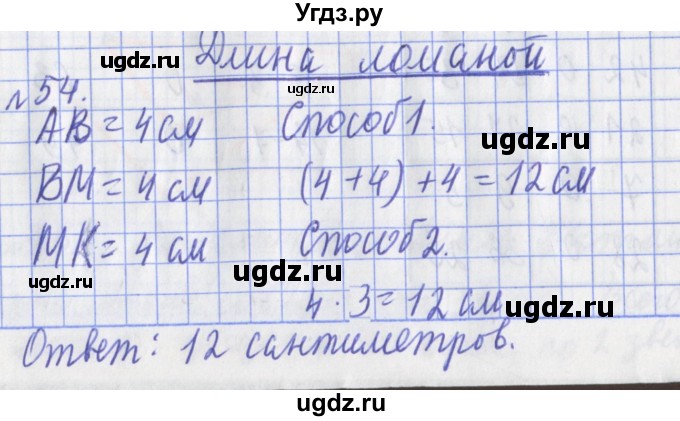 Угдз.ру
Длина ломаной
№54.
АВ = 4 см Способ 1.
ВМ = 4 см (4 + 4) + 4 = 12 см
МК = 4 см Способ 2.
4 · 3 = 12 см
Ответ: 12 сантиметров.
gdz.ru
ugdz.ru
ugdz.ru
ugdz.ru
ugdz.ru
ugdz.ru
ugdz.ru
ugdz.ru
ugdz.ru